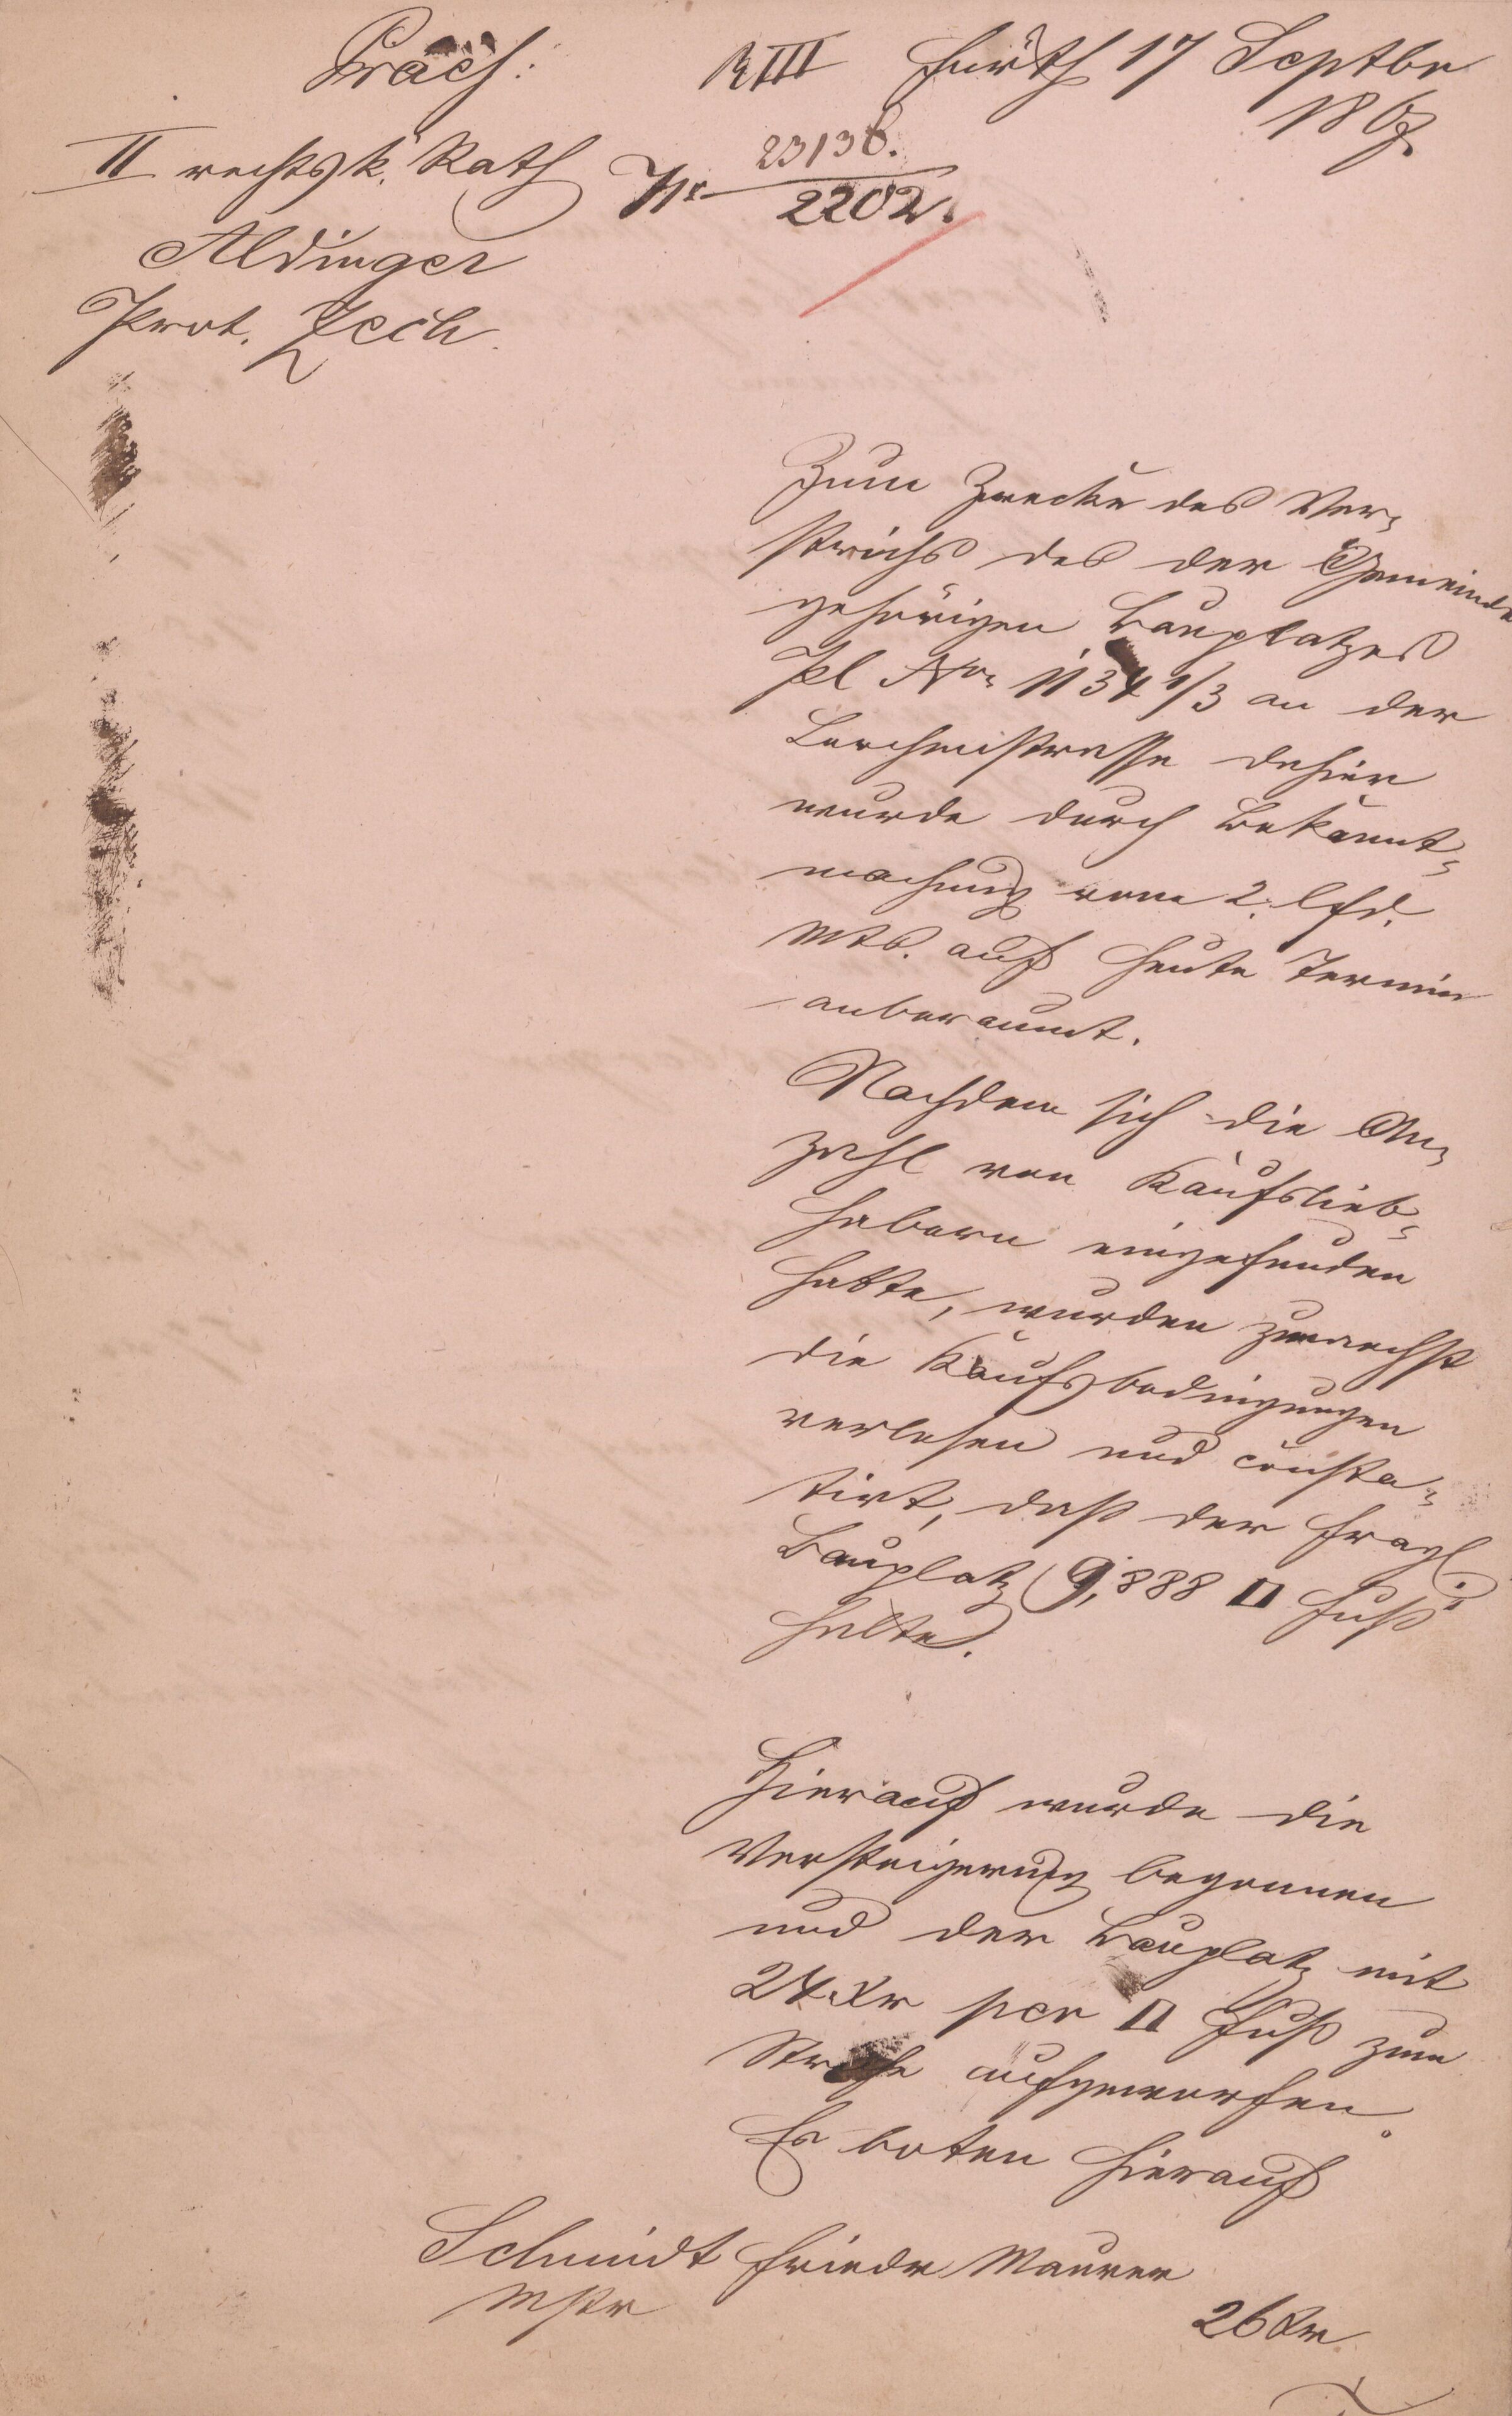 Präs:
R III Fürth 17 Septbr
1867.
II rechtsk. Rath
Nr 23138.
2202.
Aldinger
Prot. Zech.
Zum Zwecke des Ver-
strichs des der Gemeinde
gehörigen Bauplatzes
Pl Nro 1134 1/3 an der
Lerchenstrasse dahier
wurde durch Bekannt-
machung vom 2. lfd.
Mts. auf heute Termin
anberaumt.
Nachdem sich die An-
zahl von Kaufslieb-
habern eingefunden
hatte, wurden zunaechst
die Kaufsbedingungen
verlesen und consta-
tirt, daß der fragl.
Bauplatz 9,888 □ Fuß
halte.
Hierauf wurde die
Versteigerung begonnen
und der Bauplatz mit
24 Kr per □ Fuß zum
Striche aufgeworfen.
Es boten hierauf
Schmidt Friedr Maurer
Mstr
26 Kr.